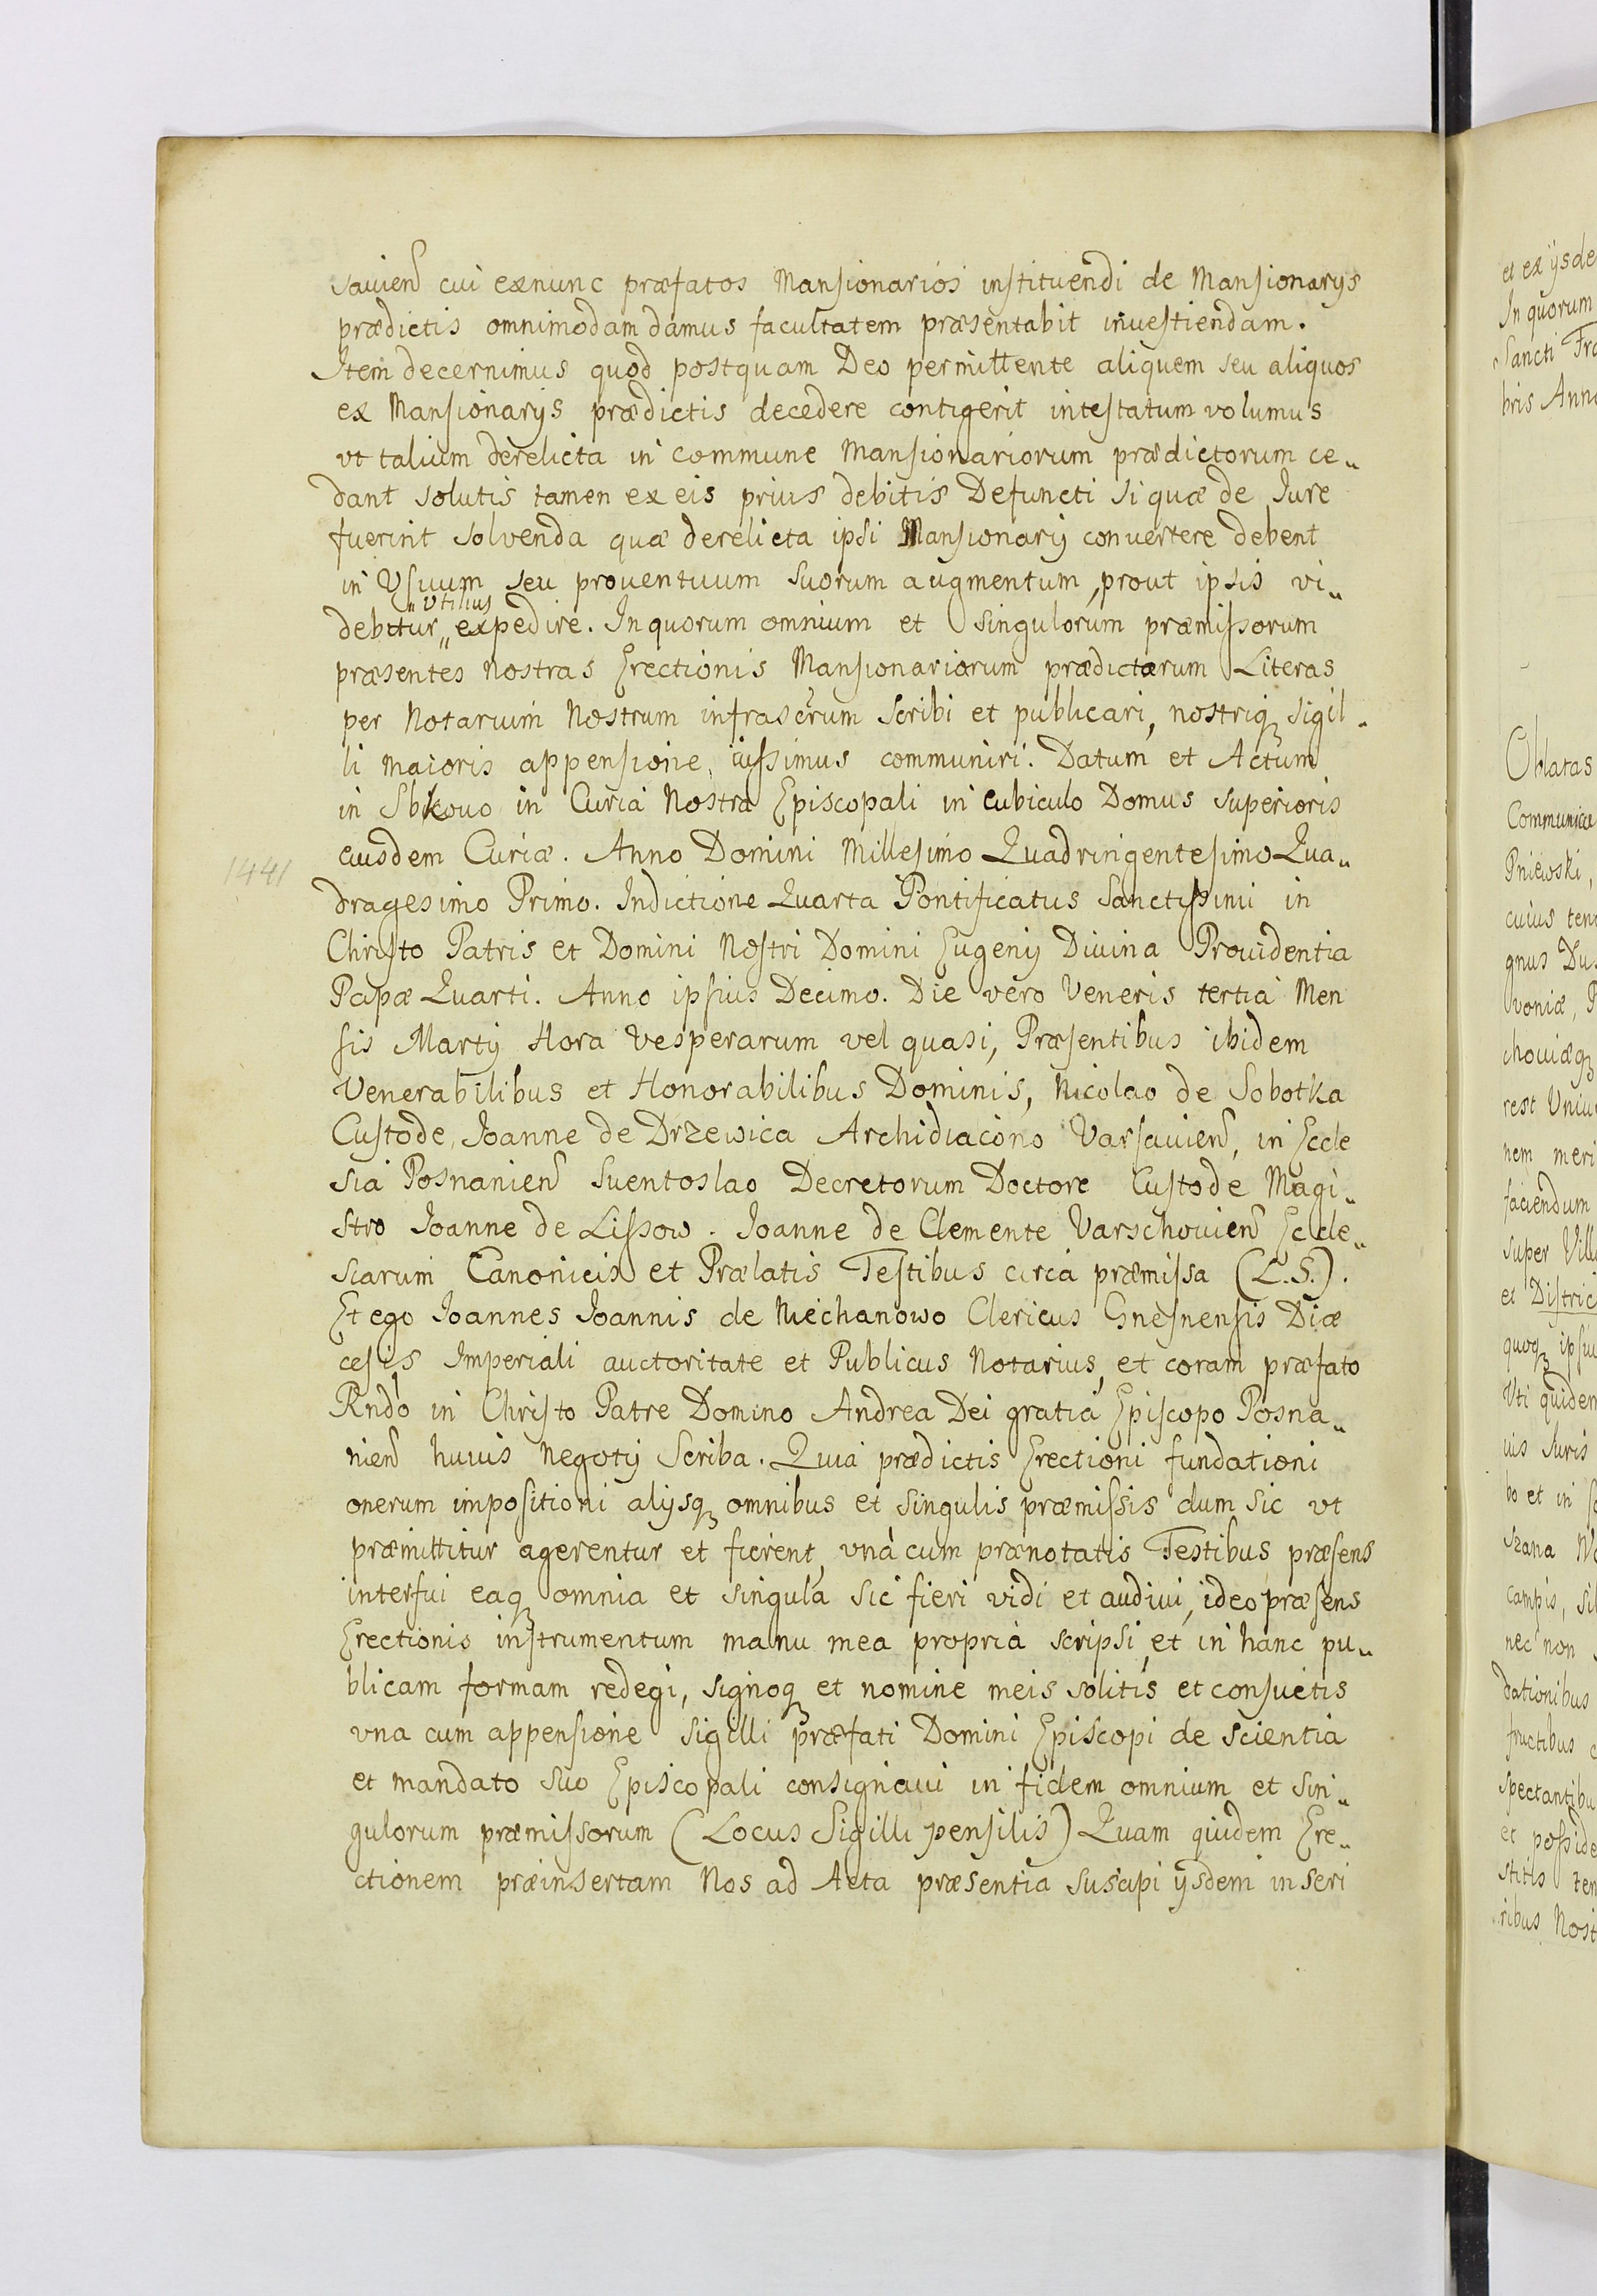 sauien̄ cui exnunc præfatos Mansionarios instituendi de Mansionarys
prædictis omnimodam damus facultatem præsentabit inuestiendam.
Item decernimus quod postquam Deo permittente aliquem seu aliquos
ex Mansionarys prædictis decedere contigerit intestatum volumus
vt talium derelicta in commune Mansionariorum prædictorum ce„
dant solutis tamen ex eis prius debitis Defuncti si quæ de Iure
fuerint solvenda quæ derelicta ipsi Mansionarij convertere debent
in Vsuum seu prouentuum suorum augmentum, prout ipsis vi„
„Vtilius
debitur„ expedire. In quorum omnium et singulorum præmissorum
præsentes nostras Erectionis Mansionariorum prædictarum Literas
per Notarium Nostrum infrascrum scribi et publicari, nostriq sigil„
li maioris appensione iussimus communiri. Datum et Actum
in Sbikouo in Curia Nostra Episcopali in cubiculo Domus superioris
eiusdem Curiæ. Anno Domini Millesimo Quadringentesimo Qua„
1441
dragesimo Primo. Indictione Quarta Pontificatus Sanctissimi in
Christo Patris et Domini Nostri Domini Eugenij Diuina Prouidentia
Papæ Quarti. Anno ipsius Decimo. Die vero Veneris tertia Men
sis Martij Hora Vesperarum vel quasi, Præsentibus ibidem
Venerabilibus et Honorabilibus Dominis, Nicolao de Sobotka
Custode, Joanne de Drzewica Archidiacono Varsauien̄, in Eccle
sia Posnanien̄ Suentoslao Decretorum Doctore Custode Magi„
stro Joanne de Lissow. Joanne de Clemente Varschouien̄ Eccle„
siarum Canonicis et Prælatis Testibus circa præmissa (L.S.).
Et ego Joannes Joannis de Miechanowo Clericus Gnesnensis Diæ
cesis Imperiali auctoritate et Publicus Notarius, et coram præfato
Rndo in Christo Patre Domino Andrea Dei gratia Episcopo Posna„
nien̄ huius Negotij Scriba. Quia prædictis Erectioni fundationi
onerum impositioni alijsq omnibus et singulis præmissis dum sic vt
præmittitur agerentur et fierent, vnà cum prænotatis Testibus præsens
interfui eaq omnia et singula sic fieri vidi et audiui, ideo præsens
Erectionis instrumentum manu mea propria scripsi, et in hanc pu„
blicam formam redegi, signoq et nomine meis solitis et consuetis
vna cum appensione sigilli præfati Domini Episcopi de scientia
et mandato suo Episcopali consignaui in fidem omnium et sin„
gulorum præmissorum (Locus Sigilli pensilis) Quam quidem Ere„
ctionem præinsertam Nos ad Acta præsentia suscipi ijsdem inseri
et ex ijsde
In quorum
Sancti Fra
bris Anno
Oblatas
Communicæ
Pniewski,
cuius teno
gnus Du
voniæ, P
chouiæq
rest Vniu
nem meri
faciendum
super Villa
et Distric
quoq ipsiu
Vti quidem
uis Iuris
bo et in
szana
campis, sil
nec non
dationibus
fructibus
spectantibu
et posside
stitis ten
ribus Nost